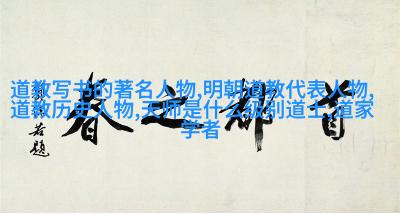 道教写书的著名人物,明朝道教代表人物,
道教历史人物,天师是什么级别道士,道家
学者
首都之春
若题